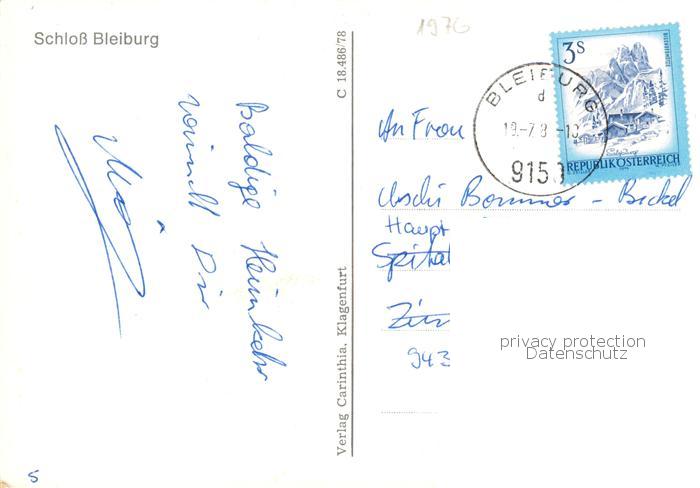 Schloß Bleiburg
1976
C 18.486/78
Baldige Heimkehr
wünscht Dir
Verlag Carinthia, Klagenfurt
3 S
REPUBLIK ÖSTERREICH
BLEIBURG
d
9150
An Frau
Uschi Bommer - Bickel
Haupt
Spital
Zür
943
privacy protection
Datenschutz
5